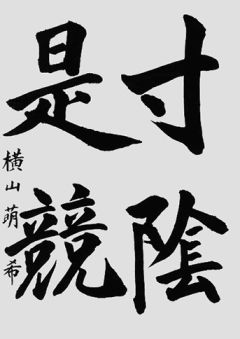 寸陰
是競
横山萌希